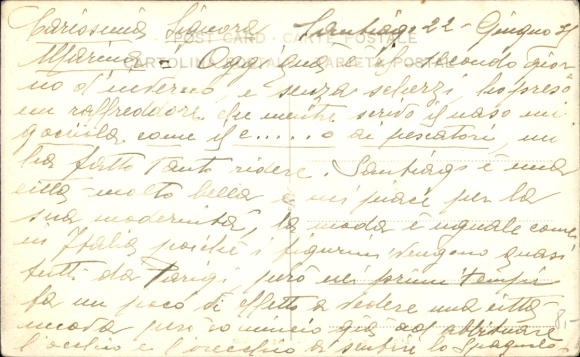 Carissima Signora Santiago 22 - Giugno 31
POST CARD - CARTE POSTALE
Marina = Oggi qua è il secondo gior
CARTOLINA POSTALE - TARJETA POSTAL
no d'inverno, e senza scherzi, ho preso
un raffreddore che mentre scrivo il naso mi
gocciola, come il c......o ai pescatori, mi
ha fatto tanto ridere. Santiago è una
città molto bella e mi piace per la
sua modernità, la moda è uguale come
in Italia poiché i figurini vengono quasi
tutti da Parigi, però nei primi tempi
fa un poco di effetto a vedere una città
nuova però io comincio già ad abituare
l'occhio e l'orecchio a sentire lo Spagnolo
8,-